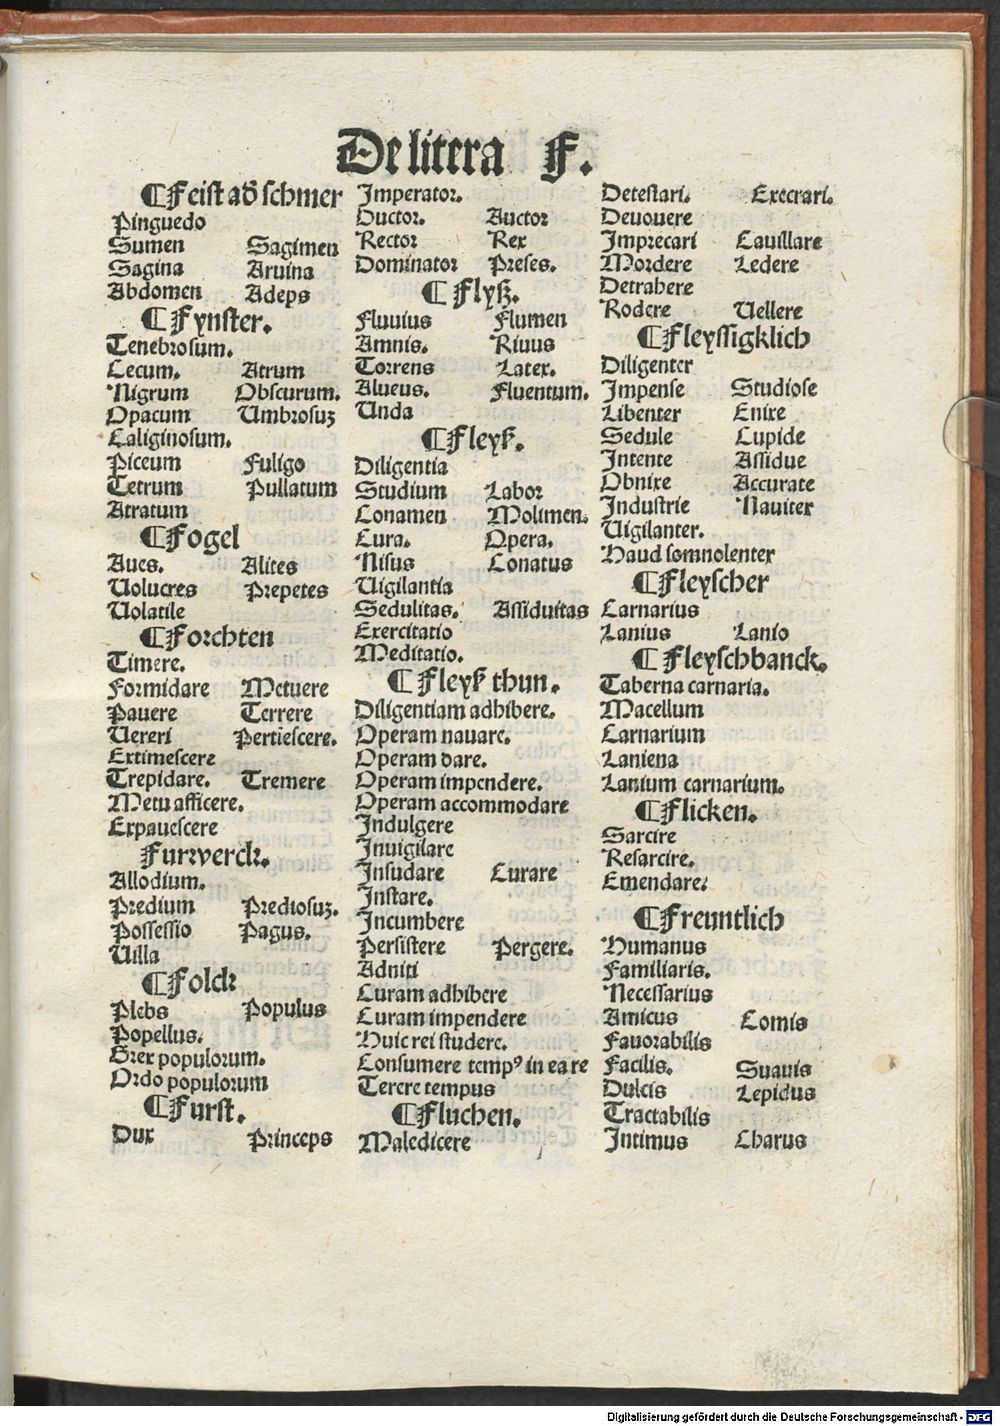 De litera F.
¶Feist ad̕ schmer
Pinguedo
Sumen Sagimen
Sagina Aruina
Abdomen Adeps
¶Fynster.
Tenebrosum.
Cecum. Atrum
Nigrum Obscurum.
Opacum Umbrosuꝫ
Caliginosum.
Piceum Fuligo
Tetrum Pullatum
Atratum
¶Fogel
Aues. Alites
Uolucres Prepetes
Uolatile
¶Forchten
Timere.
Formidare Metuere
Pauere Terrere
Uereri Pertiescere.
Extimescere
Trepidare. Tremere
Metu afficere.
Expauescere
Furwerck.
Allodium.
Predium Prediosuꝫ.
Possessio Pagus.
Uilla
¶Folck
Plebs Populus
Popellus.
Grex populorum.
Ordo populorum
¶Furst.
Dux Princeps
Imperator.
Ductor. Auctor
Rector Rex
Dominator Preses.
¶Flyß.
Fluuius Flumen
Amnis. Riuus
Torrens Latex.
Alueus. Fluentum.
Unda
¶Fleyß.
Diligentia
Studium Labor
Conamen Molimen.
Cura. Opera.
Nisus Conatus
Uigilantia
Sedulitas. Assiduitas
Exercitatio
Meditatio.
¶Fleyß thun.
Diligentiam adhibere.
Operam nauare.
Operam dare.
Operam impendere.
Operam accommodare
Indulgere
Inuigilare
Insudare Curare
Instare.
Incumbere
Persistere Pergere.
Adniti
Curam adhibere
Curam impendere
Huic rei studere.
Consumere tempꝰ in ea re
Terere tempus
¶Fluchen.
Maledicere
Detestari. Execrari.
Deuouere
Imprecari Cauillare
Mordere Ledere
Detrahere
Rodere Uellere
¶Fleyssigklich
Diligenter
Impense Studiose
Libenter Enixe
Sedule Cupide
Intente Assidue
Obnixe Accurate
Industrie Nauiter
Uigilanter.
Haud somnolenter
¶Fleyscher
Carnarius
Lanius Lanio
¶Fleyschbanck.
Taberna carnaria.
Macellum
Carnarium
Laniena
Lanium carnarium.
¶Flicken.
Sarcire
Resarcire.
Emendare.
¶Freuntlich
Humanus
Familiaris.
Necessarius
Amicus Comis
Fauorabilis
Facilis. Suauis
Dulcis Lepidus
Tractabilis
Intimus Charus
Digitalisierung gefördert durch die Deutsche Forschungsgemeinschaft - DFG